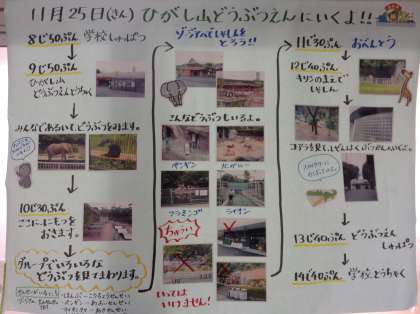 11月25日(きん) ひがし山どうぶつえんにいくよ!!
8じ50ぷん 学校しゅっぱつ
9じ50ぷん
ひがし山
どうぶつえんとうちゃく
みんなであるいて、どうぶつをみます。
10じ30ぷん
ここに、にもつを
おきます。
グループでいろいろな
どうぶつを見てまわります。
ゾウのまえでしゃしんを
とろう!!
こんなどうぶつもいるよ。
ペンギン
フラミンゴ
ライオン
ちゅうい
いっては
いけません!
11じ30ぷん おべんとう
12じ40ぷん
キリンのまえで
しゃしん
コアラを見て、しぜんはくぶつかんへいくよ。
13じ40ぷん どうぶつえん
しゅっぱつ
14じ40ぷん 学校とうちゃく